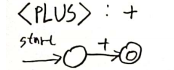 <PLUS> : +
start
+